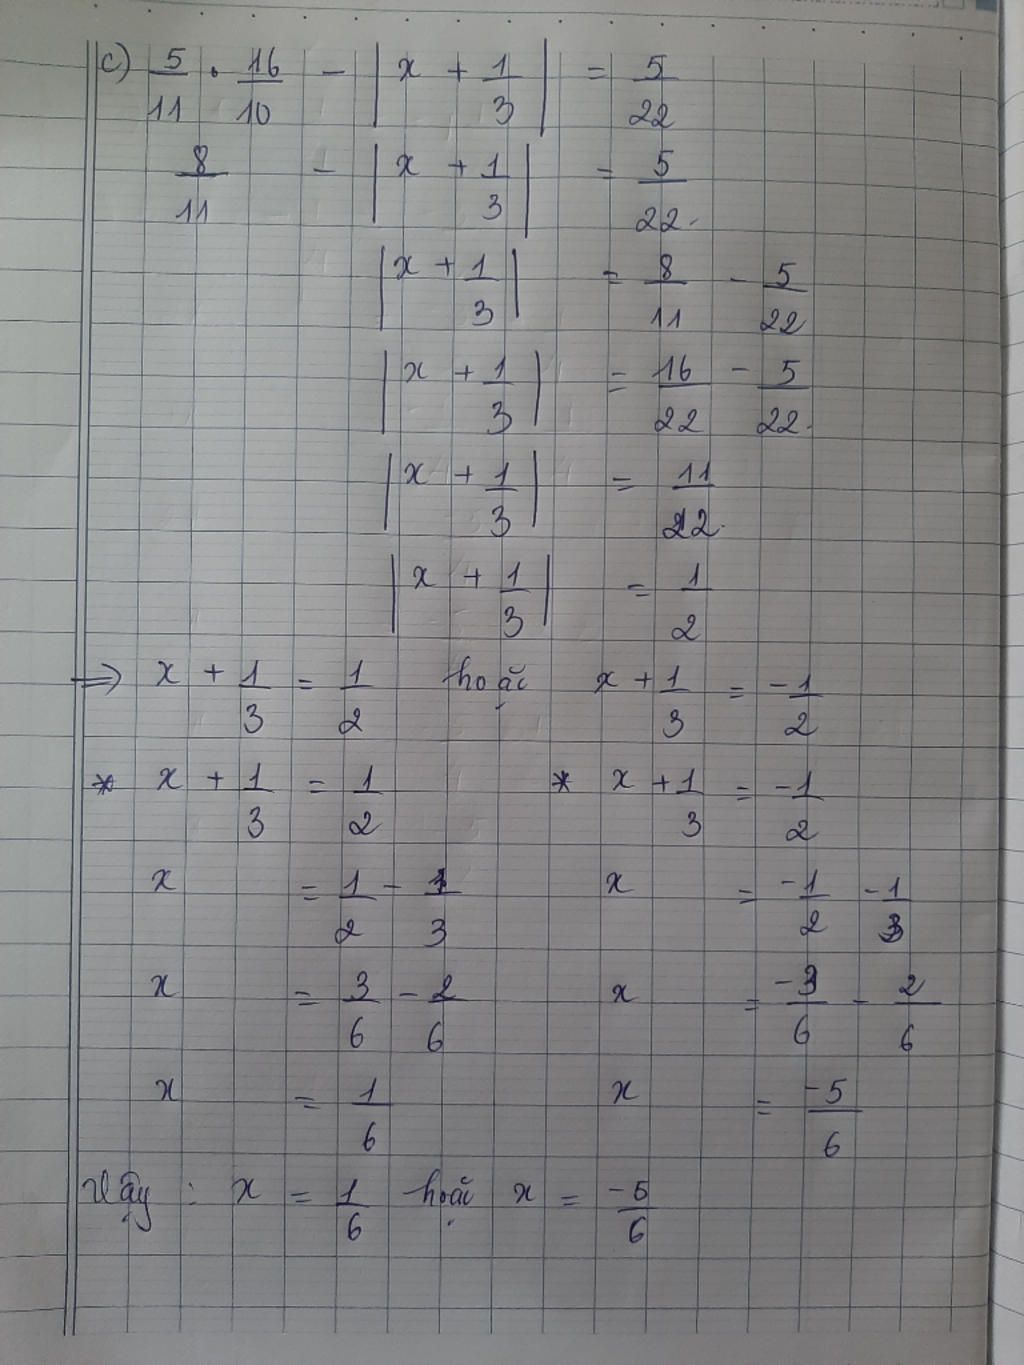 c) 5/11 . 16/10 - |x + 1/3| = 5/22
8/11 - |x + 1/3| = 5/22.
|x + 1/3| = 8/11 - 5/22
|x + 1/3| = 16/22 - 5/22.
|x + 1/3| = 11/22.
|x + 1/3| = 1/2
=> x + 1/3 = 1/2 hoặc x + 1/3 = -1/2
* x + 1/3 = 1/2 * x + 1/3 = -1/2
x = 1/2 - 1/3 x = -1/2 - 1/3
x = 3/6 - 2/6 x = -3/6 - 2/6
x = 1/6 x = -5/6
Vậy : x = 1/6 hoặc x = -5/6